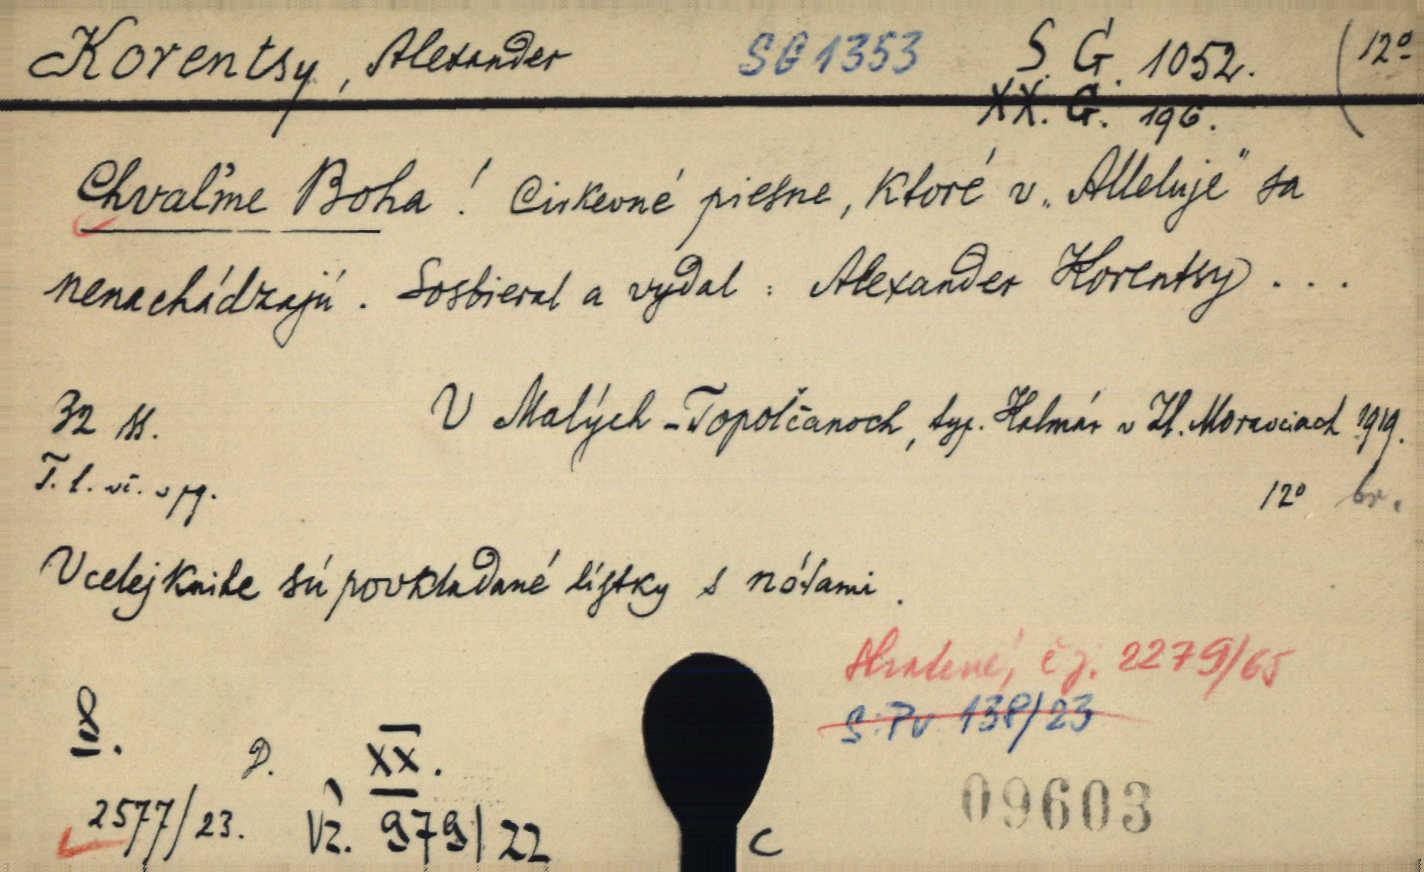 Korentsy, Alexander SG 1353 S. G. 1052. (12º
XX. G. 196.
Chvaľme Boha! Cirkevné piesne, ktoré v „Alleluje" sa
nenachádzajú. Sosbieral a vydal: Alexander Korentsy ...
32 ss. V Malých-Topolčanoch, typ. Halmár v Zl. Moravciach 1919.
T. l. 12º br.
V celej knihe sú povkladané lístky s nótami.
Stratené, č j. 2279/65
S. Pv 138/23
D. XX.
2577/23. Vz. 979/22
09603
C